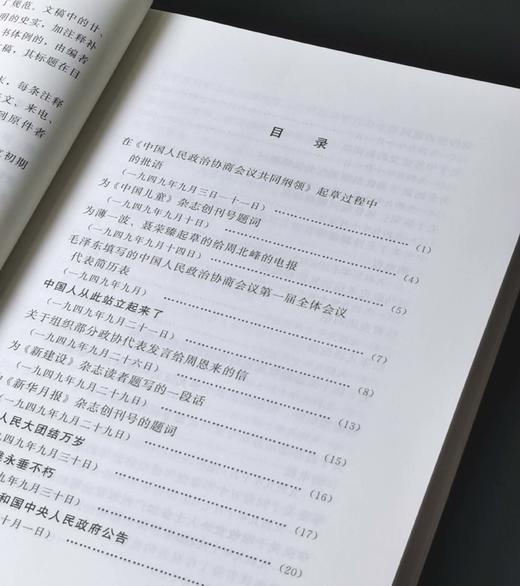 了规范。文稿中的甘、
明的史实，加注释补
书体例的，由编者
文稿，其标题在目
，每条注释
文、来电、
到原件者
初期
目 录
在《中国人民政治协商会议共同纲领》起草过程中
的批语
(一九四九年九月三日—十一日) (1)
为《中国儿童》杂志创刊号题词
(一九四九年九月十日) (4)
为薄一波、聂荣臻起草的给周北峰的电报
(一九四九年九月十四日) (5)
毛泽东填写的中国人民政治协商会议第一届全体会议
代表简历表
(一九四九年九月) (7)
中国人从此站立起来了
(一九四九年九月二十一日) (8)
关于组织部分政协代表发言给周恩来的信
(一九四九年九月二十六日) (13)
为《新建设》杂志读者题写的一段话
(一九四九年九月二十九日) (15)
《新华月报》杂志创刊号的题词
一九四九年九月二十九日) (16)
人民大团结万岁
九四九年九月三十日) (17)
永垂不朽
九年九月三十日) (20)
和国中央人民政府公告
十月一日)